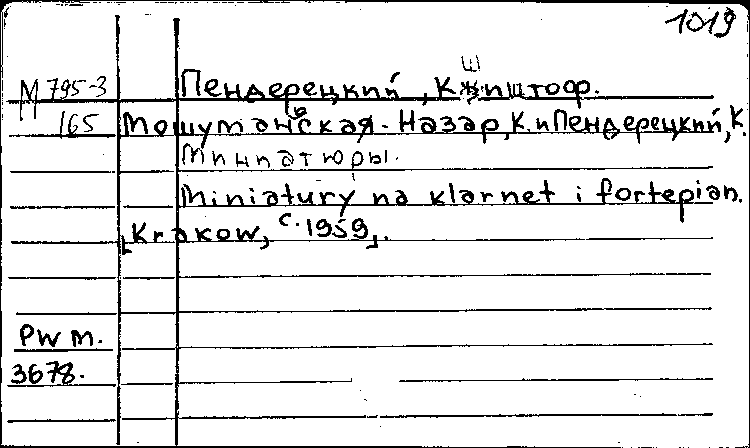 1019
М 795-3 Пендерецкий, Кшиштоф.
165 Мошуманьская-Назар, К. и Пендерецкий, К.
Миниатюры.
Miniatury na klarnet i fortepian.
[Krakow, c. 1959].
PWM.
3678.